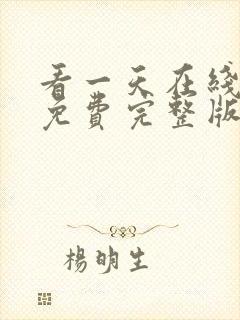 看一天在线
免费完整版
楊明生